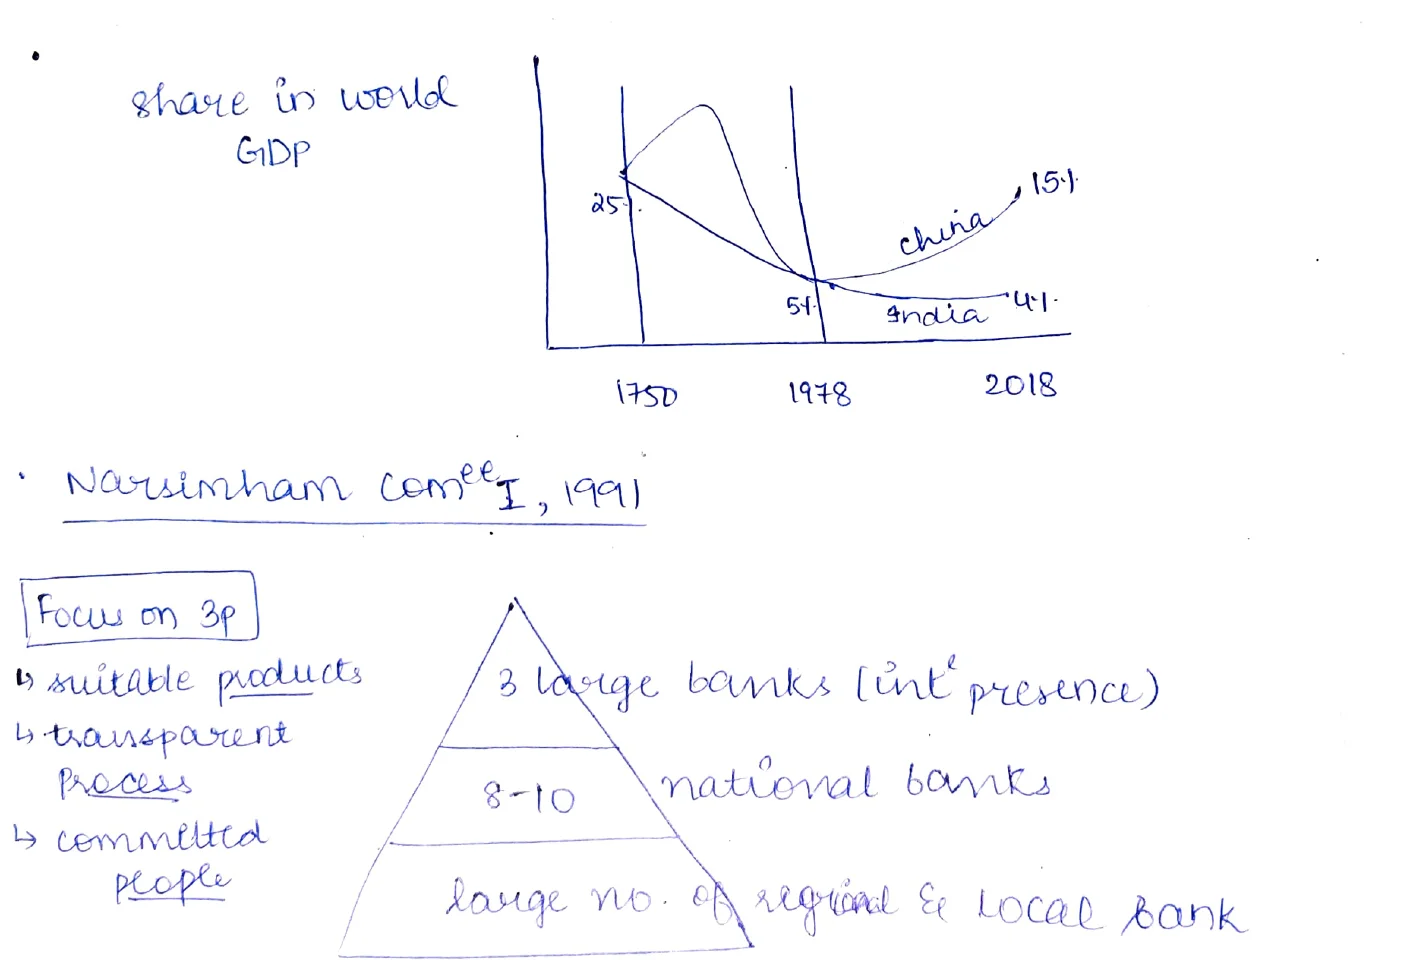 share in world
GDP
25%.
5%
China
15%.
India
4%.
1750 1978 2018
Narsimham comᵉᵉ I, 1991
Focus on 3p
↳ suitable products
↳ transparent
Process
↳ committed
people
3 large banks (intˡ presence)
8-10 national banks
large no. of regional & Local Bank